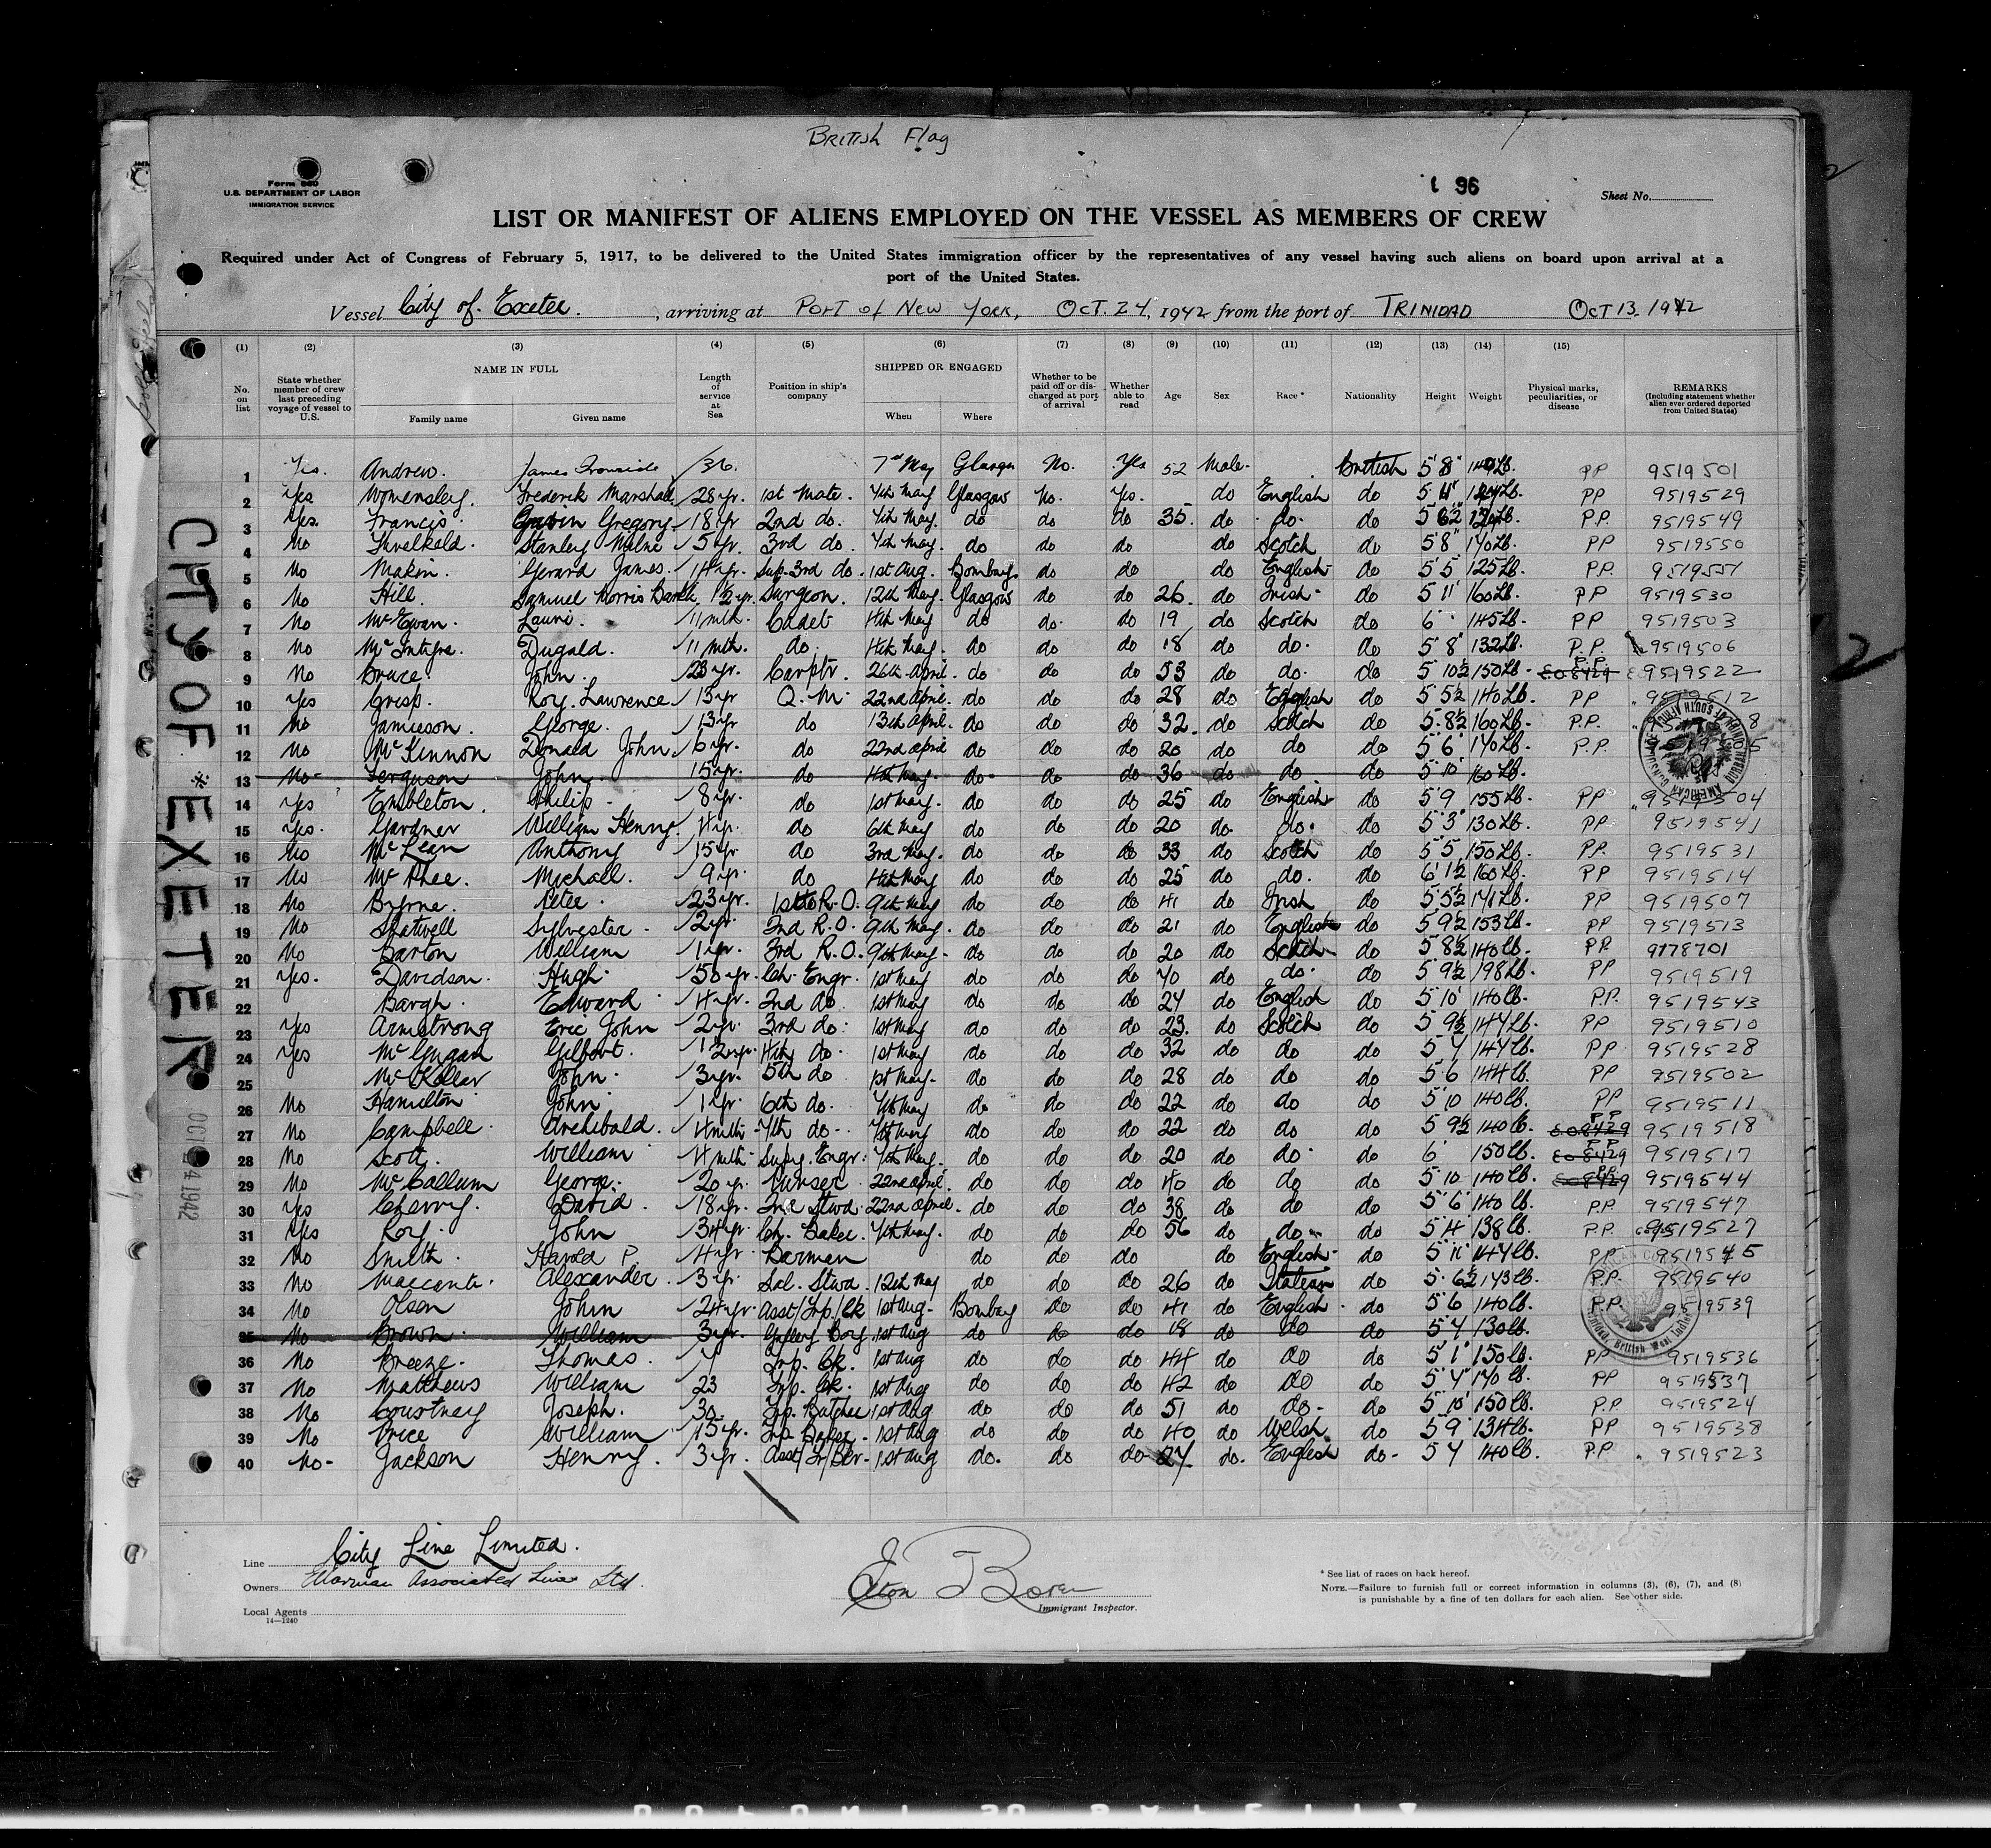 BRITISH Flag
Form 680
U.S. DEPARTMENT OF LABOR
IMMIGRATION SERVICE
96
Sheet No.
LIST OR MANIFEST OF ALIENS EMPLOYED ON THE VESSEL AS MEMBERS OF CREW
Required under Act of Congress of February 5, 1917, to be delivered to the United States immigration officer by the representatives of any vessel having such aliens on board upon arrival at a
port of the United States.
Vessel City of Exeter., arriving at PORT of NEW YORK, OCT. 24, 1942 from the port of TRINIDAD OCT 13. 1942
(1) (2) (3) (4) (5) (6) (7) (8) (9) (10) (11) (12) (13) (14) (15)
No. on list State whether member of crew last preceding voyage of vessel to U.S. NAME IN FULL Family name Given name Length of service at Sea Position in ship's company SHIPPED OR ENGAGED When Where Whether to be paid off or discharged at port of arrival Whether able to read Age Sex Race * Nationality Height Weight Physical marks, peculiarities, or disease REMARKS (Including statement whether alien ever ordered deported from United States)
1 Yes. Andrew. James Ironside 36. 7th May Glasgow No. Yes 52 Male. British 5 8" 149 Lb. PP 9519501
2 Yes Womersley. Frederik Marshall 28 yr. 1st Mate. 4th May Glasgow No. Yes. do English do 5 11" Lb. PP 9519529
3 Yes. Francis. Gavin Gregory 18 yr 2nd do. 4th May. do do do 35. do do. do 5 6½ Lb. P.P. 9519549
4 No Threlkeld. Stanley Milne 5 yr. 3rd do. 7th May. do do do do Scotch do 5 8" 140 Lb. PP 9519550
5 No Makin. Gerard James. 14 yr. Sup. 3rd do. 1st Aug. Bombay. do do do English do 5 5 125 Lb. P.P. 9519551
6 No Hill. Samuel Morris 1½ yr. Surgeon. 12th May. Glasgow do do 26. do Irish do 5 11" 160 Lb. PP 9519530
7 No McEwan. 11 mth. Cadet 4th May do do do 19 do Scotch do 6 145 Lb. PP 9519503
8 No McIntyre. Dugald. 11 mth. do. 4th May. do do do 18 do do. do 5 8" 132 Lb. P.P. 9519506
9 No Bruce. John. 23 yr. Carptr. 26th April. do do do 53 do do. do 5 10½ 150 Lb. E08429 P.P. 9519522
10 Yes Crisp. Roy. Lawrence 13 yr Q. M. 22nd April. do do do 28 do English do 5 5½ 140 Lb. PP 9519512
11 No Jamieson. George. 13 yr do 13th April. do do do 32. do Scotch do 5. 8½ 160 Lb. P.P. 8
12 No McKinnon Donald John. 6 yr. do 22nd April do do do 20 do do do 5 6" 140 Lb. P.P. 5
13 No Ferguson John 15 yr. do 4th May. do do do 36 do do do 5 10" 160 Lb.
14 Yes Embleton. Philip. 8 yr. do 1st May. do do do 25 do English do 5 9 155 Lb. PP 9519504
15 Yes. Gardner William Henry. 4 yr. do 6th May do do do 20 do do. do 5 3" 130 Lb. PP 9519541
16 No McLean Anthony 15 yr do 3rd May. do do do 33 do Scotch do 5 5 150 Lb. PP. 9519531
17 No McPhee. Michael. 9 yr. do 4th May do do do 25 do do. do 6 1½ 160 Lb. PP 9519514
18 No Byrne. Peter 23 yr. 1st R.O. 9th May do do do 41 do Irish do 5 5½ 141 Lb PP 9519507
19 No Shatwell Sylvester 2 yr. 2nd R.O. 9th May. do do do 21 do English do 5 9½ 153 Lb. PP 9519513
20 No Barton William 1 yr. 3rd R.O. 9th May. do do do 20 do Scotch do 5 8½ 140 lb. PP. 9178701
21 Yes. Davidson. Hugh. 50 yr. Ch. Engr. 1st May do do do 70 do do. do 5 9½ 198 Lb. PP 9519519
22 Bargh. Edward 4 yr. 2nd do 1st May do do do 24 do English do 5 10" 140 lb. P.P. 9519543
23 Yes Armstrong Eric John 2 yr. 3rd do. 1st May do do do 23. do Scotch do 5 9½ 147 Lb. PP 9519510
24 Yes McGugan Gilbert. 12 yr. 4th do. 1st May do do do 32 do do do 5 7 147 Lb. PP. 9519528
25 McKellar John. 3 yr. 5th do 1st May. do do do 28 do do do 5.6 144 lb. PP 9519502
26 No Hamilton John 1 yr. 6th do. 7th May do do do 22 do do do 5 10 140 lb. PP 9519511
27 No Campbell. Archibald. 4 mth 7th do 7th May do do do 22 do do do 5 9½ 140 lb. E08429 P.P. 9519518
28 No Scott. William 4 mth Supy. Engr. 7th May. do do do 20 do do. do 6 150 lb. E08429 P.P. 9519517
29 No McCallum George. 20 yr. Purser. 22nd April. do do do 40 do do do 5.10 140 lb. E08429 P.P. 9519544
30 Yes Cherry. David. 18 yr. 2nd Stwd. 22nd April. do do do 38 do do do 5 6" 140 lb. P.P. 9519547
31 Yes Roy. John 34 yr. Ch. Baker. 7th May. do do do 56 do do do 5 4" 138 lb. P.P. 9519527
32 No Smith. Harold P. 4 yr. Barman do do do do English do 5 11" 147 lb. PP 9519545
33 No Alexander. 3 yr. Sal. Stwd. 12th May do do do 26 do Italian do 5. 6½ 143 lb. P.P. 9519540
34 No Olson John 24 yr. Asst/Trp/Ck 1st Aug. Bombay do do 41 do English do 5 6 140 lb. P.P. 9519539
35 No Brown. William 3 yr. Galley Boy. 1st Aug do do do 18 do do do 5 7 130 lb.
36 No Breeze. Thomas. 7 Trp. Ck. 1st Aug do do do 44 do do do 5 1" 150 lb. PP 9519536
37 No Matthews William 23 Trp. Ck. 1st Aug do do do 42 do do do 5 4" 170 lb. PP 9519537
38 No Courtney Joseph. 30. Trp. Butcher 1st Aug do do do 51 do do. do 5 10" 150 lb. P.P 9519524
39 No Price William 15 yr. Trp. Baker. 1st Aug do do do 40 do Welsh do 5 9 134 lb. PP 9519538
40 No. Jackson Henry. 3 yr. Asst/Tr/Bkr. 1st Aug do. do do 27 do. English do. 5 7 140 lb. P.P. 9519523
CITY OF * EXETER
OCT 24 1942
Line City Line Limited.
Owners Ellerman Associated Lines Ltd.
Local Agents
14—1240
Immigrant Inspector.
* See list of races on back hereof.
NOTE.—Failure to furnish full or correct information in columns (3), (6), (7), and (8)
is punishable by a fine of ten dollars for each alien. See other side.